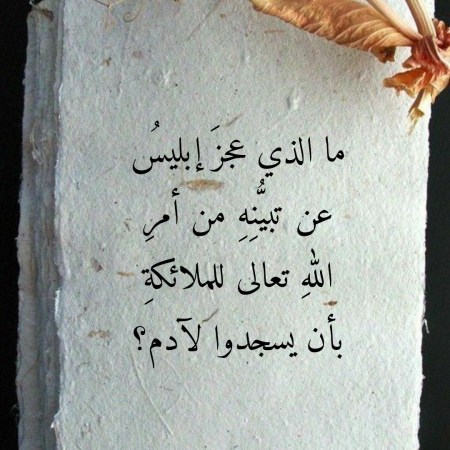 ما الذي عجزَ إبليسُ
عن تبيُّنِهِ من أمرِ
اللهِ تعالى للملائكةِ
بأن يسجدوا لآدم؟